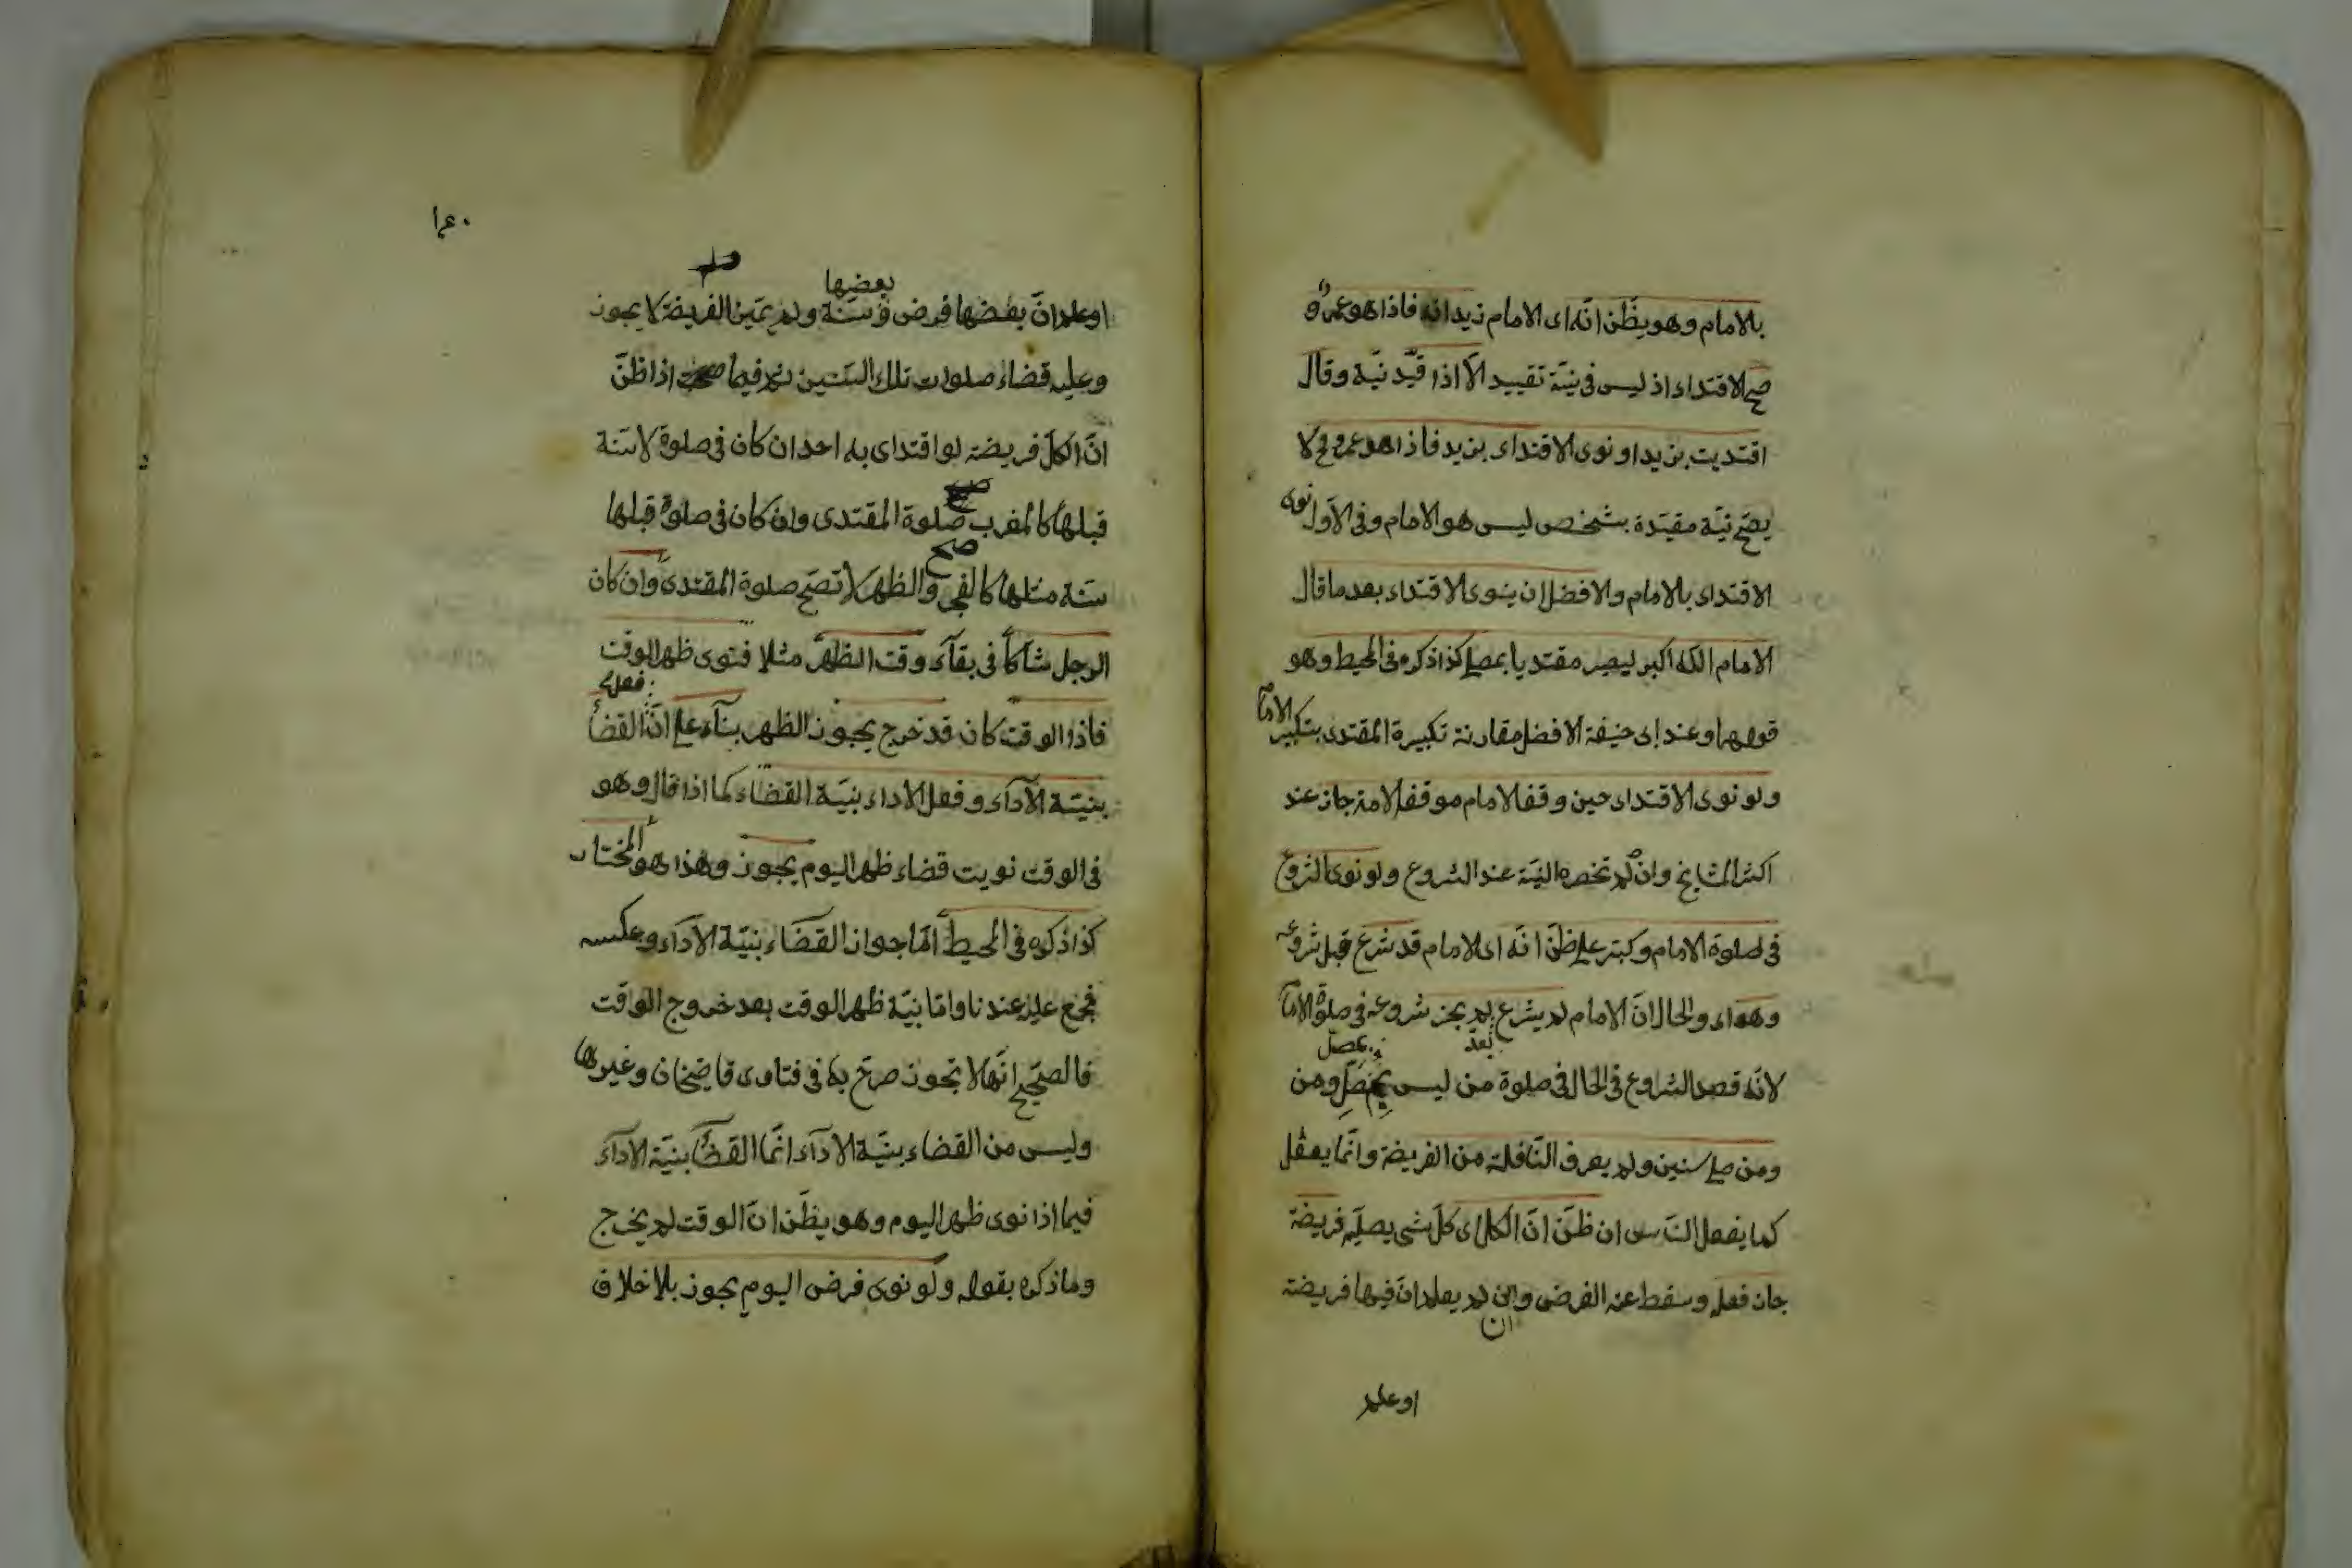 بالامام وهو يظن انه اى الامام زيد انه فاذا هو عمرو
صح الاقتداء اذ ليس فى نيته تقييد الا اذا قيد نيته وقال
اقتديت بزيد او نوى الاقتداء بزيد فاذا هو عمرو فح لا
يصح نية مقيدة بشخص ليس هو الامام وفى الاول نوى
الاقتداء بالامام والافضل ان ينوى الاقتداء بعد ما قال
الامام الله اكبر ليصير مقتديا بمصل كذا ذكره فى المحيط وهو
قولهما وعند ابى حنيفة الافضل مقارنة تكبيرة المقتدى بتكبير الامام
ولو نوى الاقتداء حين وقف الامام موقف الامامة جاز عند
اكثر المشايخ وان لم تحضره النية عند الشروع ولو نوى الشروع
فى صلوة الامام وكبر على ظن انه اى الامام قد شرع قبل شروعه
وهو اى والحال ان الامام لم يشرع بعد لم يجز شروعه فى صلوة الامام
لانه قصد الشروع فى الحال فى صلوة من ليس بمصل ومن
ومن صلى سنين ولم يعرف النافلة من الفريضة وانما يفعل
كما يفعل الناس ان ظن ان الكل اى كل شى يصليه فريضة
جاز فعله وسقط عنه الفرض وان لم يعلم ان فيها فريضة
اوعلم
١٤٠
بعضها
اوعلم ان بعضها فرض وسنة ولم يميز الفريضة لا يجوز
وعليه قضاء صلوات تلك السنين ثم فيما اذا ظن
ان الكل فريضة لو اقتدى به احد ان كان فى صلوة لا سنة
قبلها كالمغرب صح صلوة المقتدى وان كان فى صلوة قبلها
سنة مثلها كالفجر والظهر لا تصح صلوة المقتدى وان كان
الرجل شاكا فى بقاء وقت الظهر مثلا فنوى ظهر الوقت
فاذا الوقت كان قد خرج يجوز الظهر بناء على ان فعل القضاء
بنية الاداء وفعل الاداء بنية القضاء كما اذا قال وهو
فى الوقت نويت قضاء ظهر اليوم يجوز وهذا هو المختار
كذا ذكره فى المحيط اما جواز القضاء بنية الاداء وعكسه
فمجمع عليه عندنا واما بنية ظهر الوقت بعد خروج الوقت
فالصحيح انها لا تجوز صرح به فى فتاوى قاضيخان وغيرها
وليس من القضاء بنية الاداء انما القضاء بنية الاداء
فيما اذا نوى ظهر اليوم وهو يظن ان الوقت لم يخرج
وما ذكره بقوله ولو نوى فرض اليوم يجوز بلا خلاف